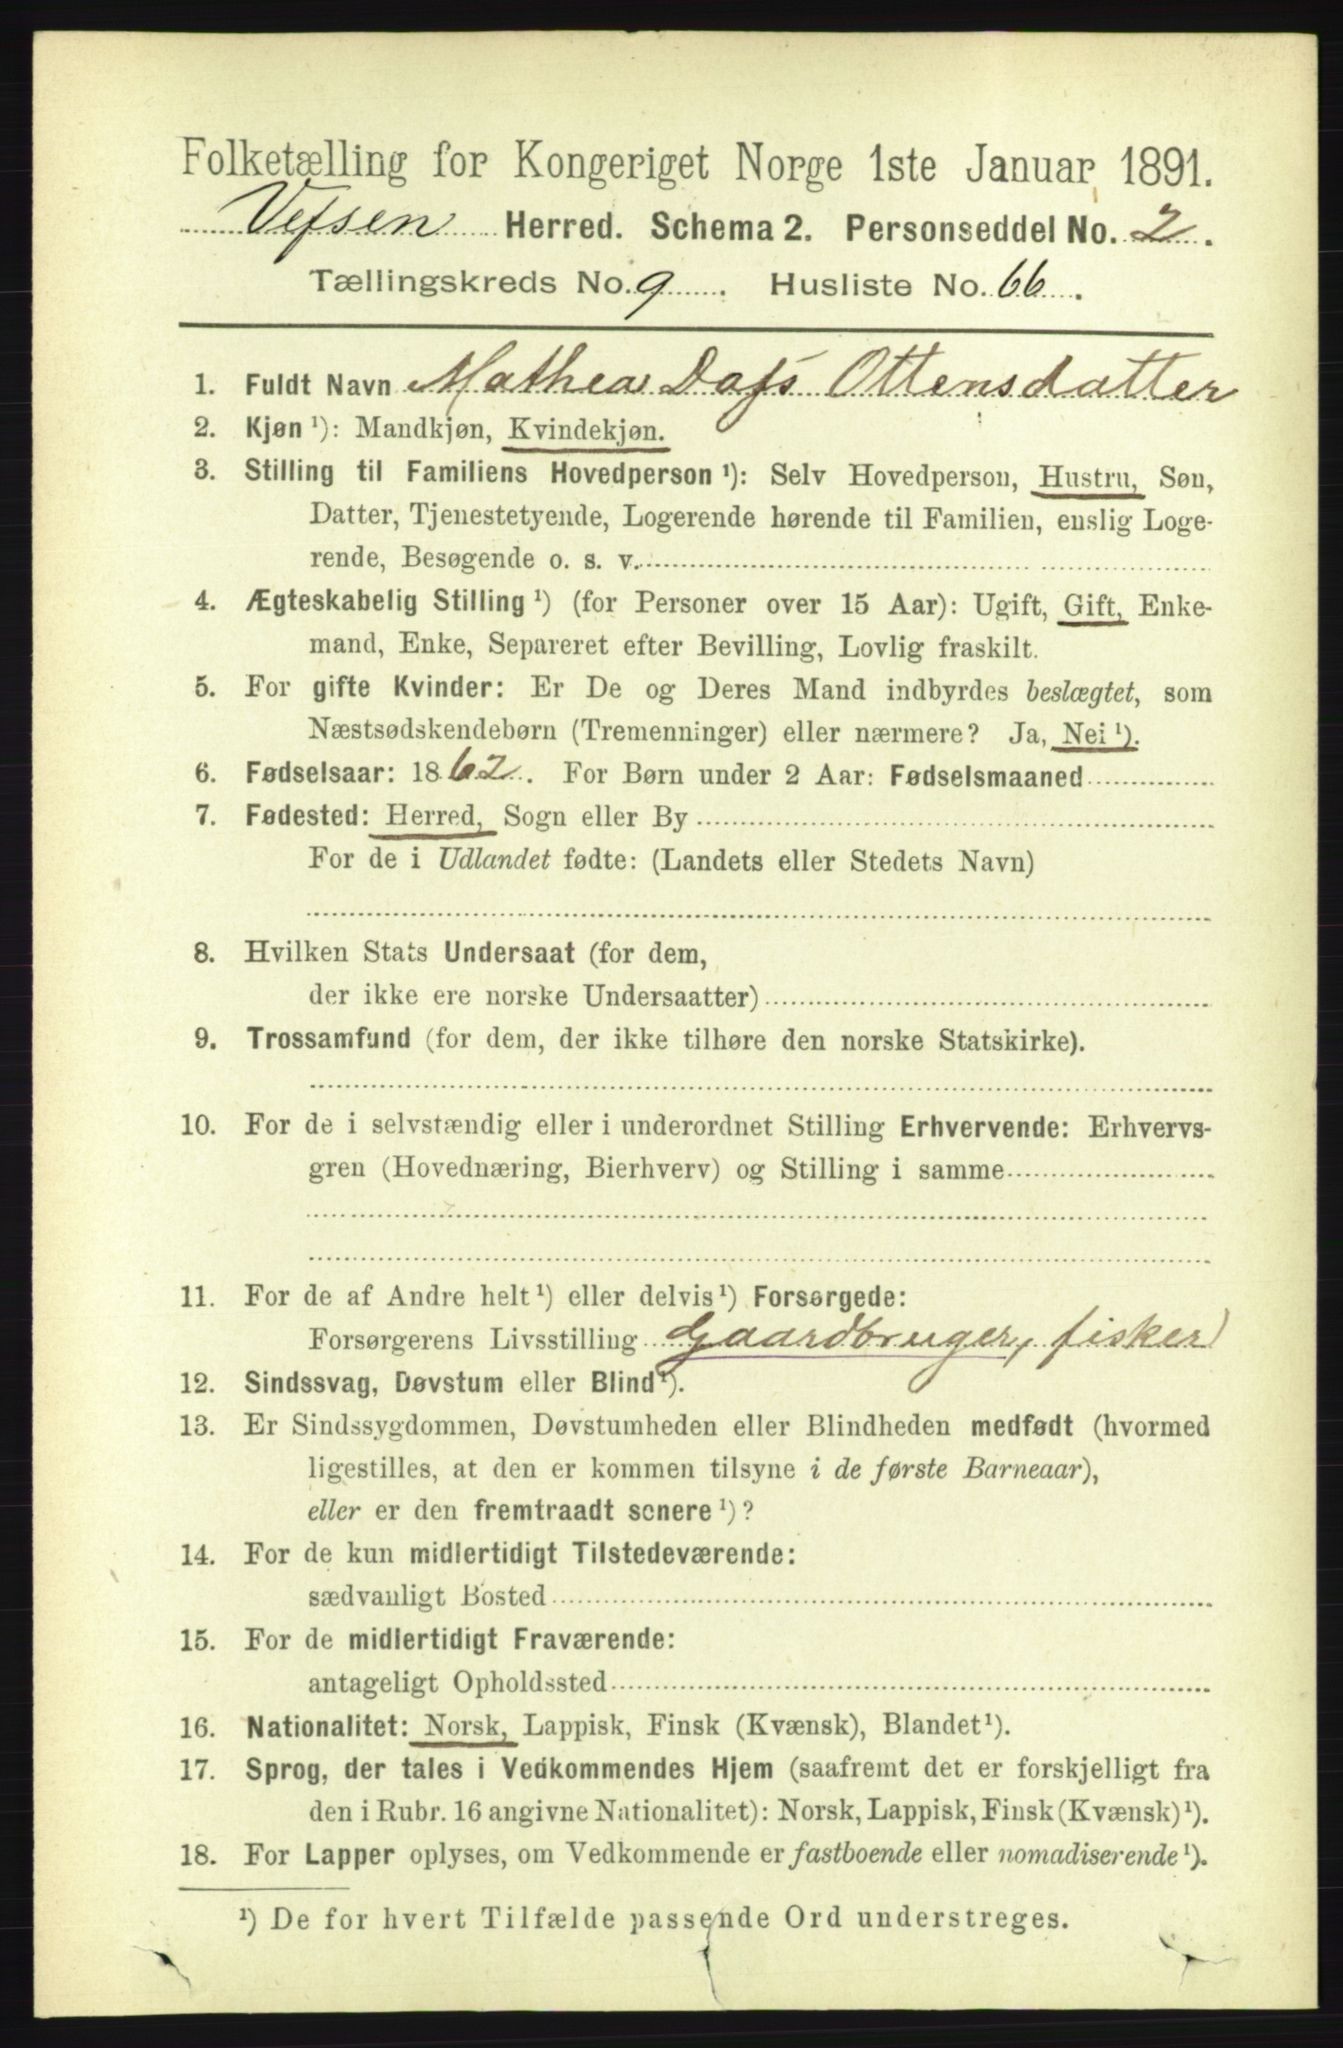 Folketælling for Kongeriget Norge 1ste Januar 1891.
Vefsen Herred. Schema 2. Personseddel No. 2.
Tællingskreds No. 9. Husliste No. 66.
1. Fuldt Navn Mathea Ottensdatter
2. Kjøn ¹): Mandkjøn, Kvindekjøn.
3. Stilling til Familiens Hovedperson ¹): Selv Hovedperson, Hustru, Søn,
Datter, Tjenestetyende, Logerende hørende til Familien, enslig Loge-
rende, Besøgende o. s. v.
4. Ægteskabelig Stilling ¹) (for Personer over 15 Aar): Ugift, Gift, Enke-
mand, Enke, Separeret efter Bevilling, Lovlig fraskilt.
5. For gifte Kvinder: Er De og Deres Mand indbyrdes beslægtet, som
Næstsødskendebørn (Tremenninger) eller nærmere? Ja, Nei ¹).
6. Fødselsaar: 1862. For Børn under 2 Aar: Fødselsmaaned
7. Fødested: Herred, Sogn eller By
For de i Udlandet fødte: (Landets eller Stedets Navn)
8. Hvilken Stats Undersaat (for dem,
der ikke ere norske Undersaatter)
9. Trossamfund (for dem, der ikke tilhøre den norske Statskirke).
10. For de i selvstændig eller i underordnet Stilling Erhvervende: Erhvervs-
gren (Hovednæring, Bierhverv) og Stilling i samme
11. For de af Andre helt ¹) eller delvis ¹) Forsørgede:
Forsørgerens Livsstilling Gaardbruger, fisker
12. Sindssvag, Døvstum eller Blind ¹).
13. Er Sindssygdommen, Døvstumheden eller Blindheden medfødt (hvormed
ligestilles, at den er kommen tilsyne i de første Barneaar),
eller er den fremtraadt senere ¹)?
14. For de kun midlertidigt Tilstedeværende:
sædvanligt Bosted
15. For de midlertidigt Fraværende:
antageligt Opholdssted
16. Nationalitet: Norsk, Lappisk, Finsk (Kvænsk), Blandet ¹).
17. Sprog, der tales i Vedkommendes Hjem (saafremt det er forskjelligt fra
den i Rubr. 16 angivne Nationalitet): Norsk, Lappisk, Finsk (Kvænsk) ¹).
18. For Lapper oplyses, om Vedkommende er fastboende eller nomadiserende ¹).
¹) De for hvert Tilfælde passende Ord understreges.